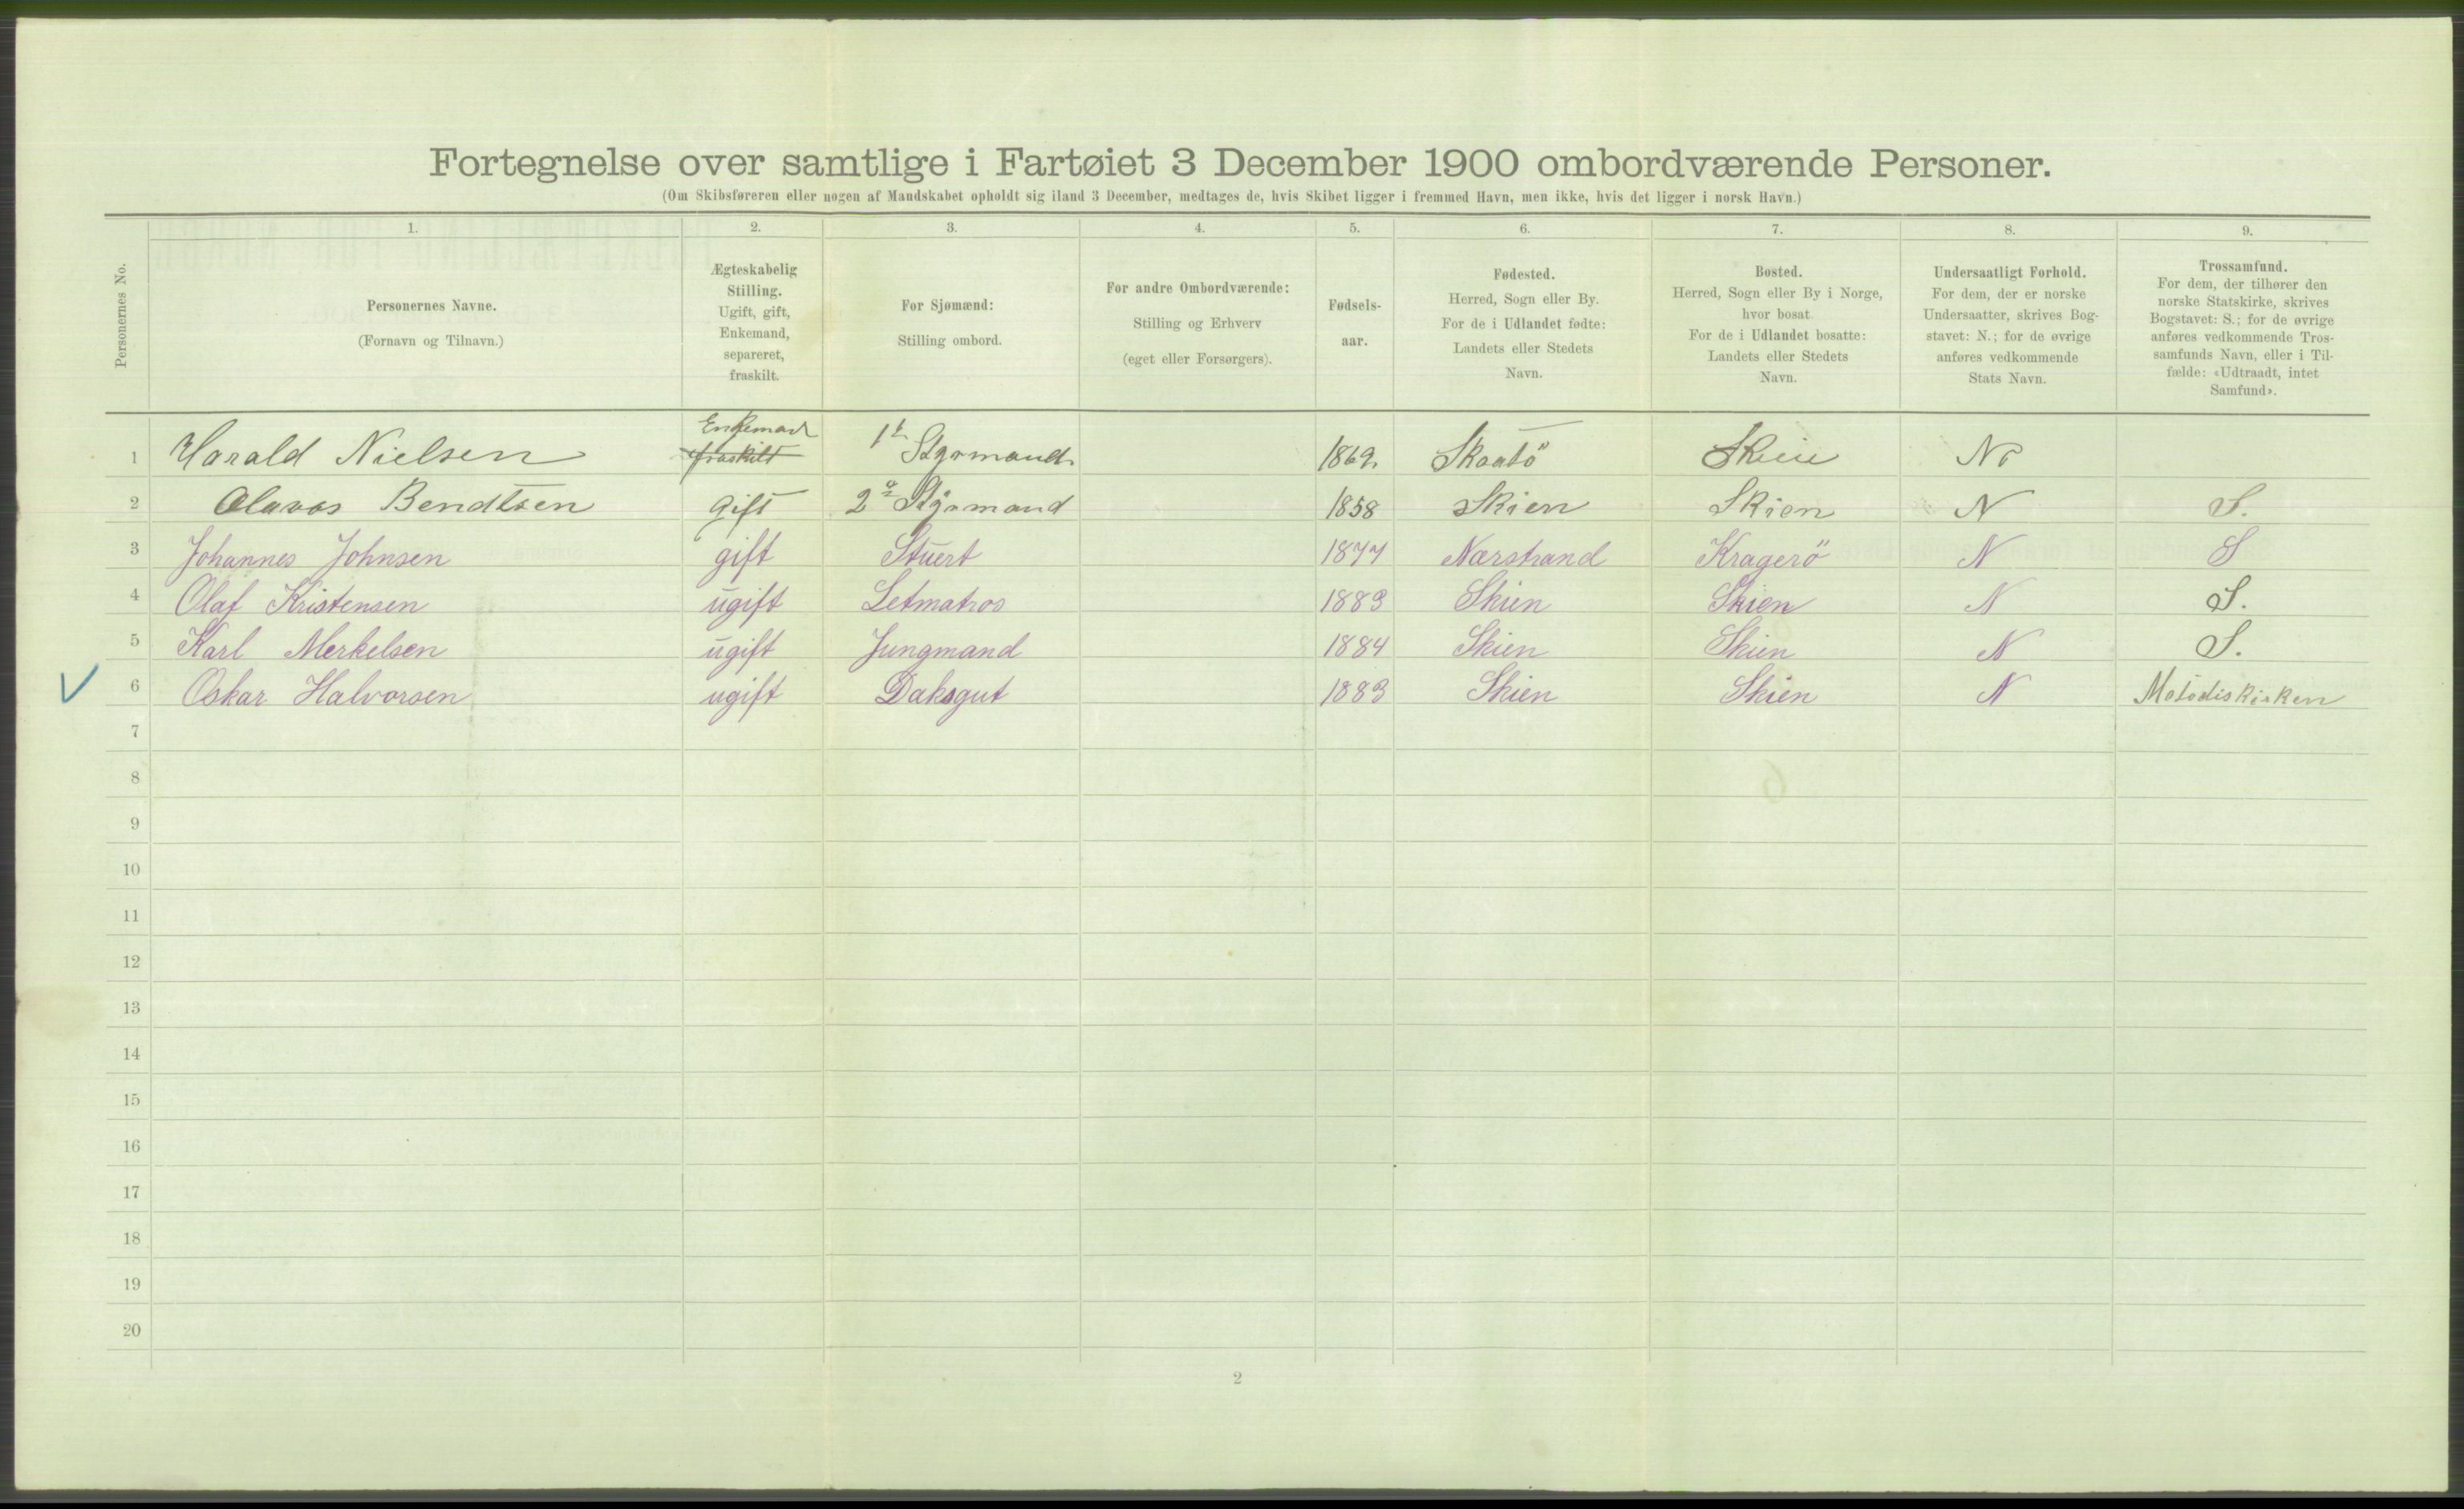 Fortegnelse over samtlige i Fartøiet 3 December 1900 ombordværende Personer.
(Om Skibsføreren eller nogen af Mandskabet opholdt sig iland 3 December, medtages de, hvis Skibet ligger i fremmed Havn, men ikke, hvis det ligger i norsk Havn.)
Personernes No.
1.
Personernes Navne.
(Fornavn og Tilnavn.)
2.
Ægteskabelig
Stilling.
Ugift, gift,
Enkemand,
separeret,
fraskilt.
3.
For Sjømænd:
Stilling ombord.
4.
For andre Ombordværende:
Stilling og Erhverv
(eget eller Forsørgers).
5.
Fødsels-
aar.
6.
Fødested.
Herred, Sogn eller By.
For de i Udlandet fødte:
Landets eller Stedets
Navn.
7.
Bosted.
Herred, Sogn eller By i Norge,
hvor bosat.
For de i Udlandet bosatte:
Landets eller Stedets
Navn.
8.
Undersaatligt Forhold.
For dem, der er norske
Undersaatter, skrives Bog-
stavet: N.; for de øvrige
anføres vedkommende
Stats Navn.
9.
Trossamfund.
For dem, der tilhører den
norske Statskirke, skrives
Bogstavet: S.; for de øvrige
anføres vedkommende Tros-
samfunds Navn, eller i Til-
fælde: «Udtraadt, intet
Samfund».
Enkemand
1 Harald Nielsen fraskilt 1t Styrmand 1862 Skaatö Skien No
2 Olavas Bendtsen gift 2a Styrmand 1858 Skien Skien N S.
3 Johannes Johnsen gift Stuert 1877 Narstrand Kragerö N S
4 Olaf Kristensen ugift Letmatros 1883 Skien Skien N S.
5 Karl Merkelsen ugift Jungmand 1884 Skien Skien N S.
6 Oskar Halvorsen ugift Daksgut 1883 Skien Skien N Metodiskirken
7
8
9
10
11
12
13
14
15
16
17
18
19
20
2